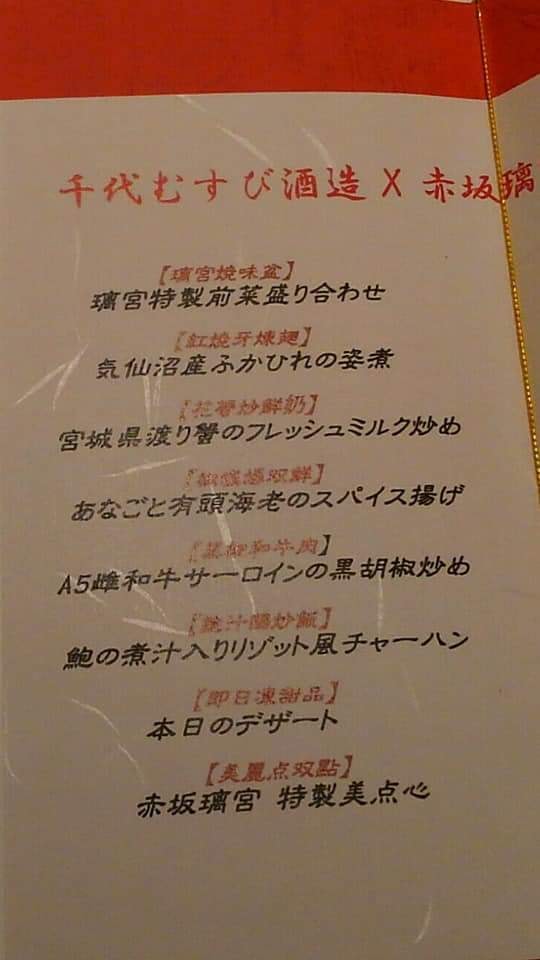 千代むすび酒造 X 赤坂璃
【璃宮焼味盆】
璃宮特製前菜盛り合わせ
【紅焼牙煉翅】
気仙沼産ふかひれの姿煮
炒鮮奶】
宮城県渡り蟹のフレッシュミルク炒め
双鮮】
あなごと有頭海老のスパイス揚げ
和牛肉】
A5雌和牛サーロインの黒胡椒炒め
汁 炒飯】
鮑の煮汁入りリゾット風チャーハン
【即日凍甜品】
本日のデザート
【美麗点双點】
赤坂璃宮 特製美点心